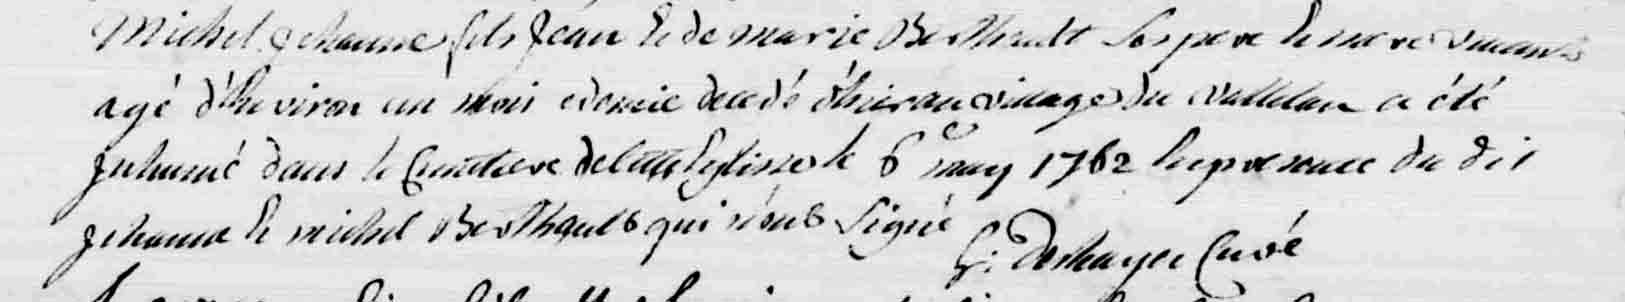 Michel Jehanne fils Jean & de marie Berthault ses pere & mere vivants
agé d'Environ un mois et demie decedé d'hier au village du vallelan a été
Inhumé dans le Cimetiere de cette Eglisse le 6e may 1762 En presence du dit
Jehanne & michel Berthault qui n'ont Signé
G: Deshayes Curé